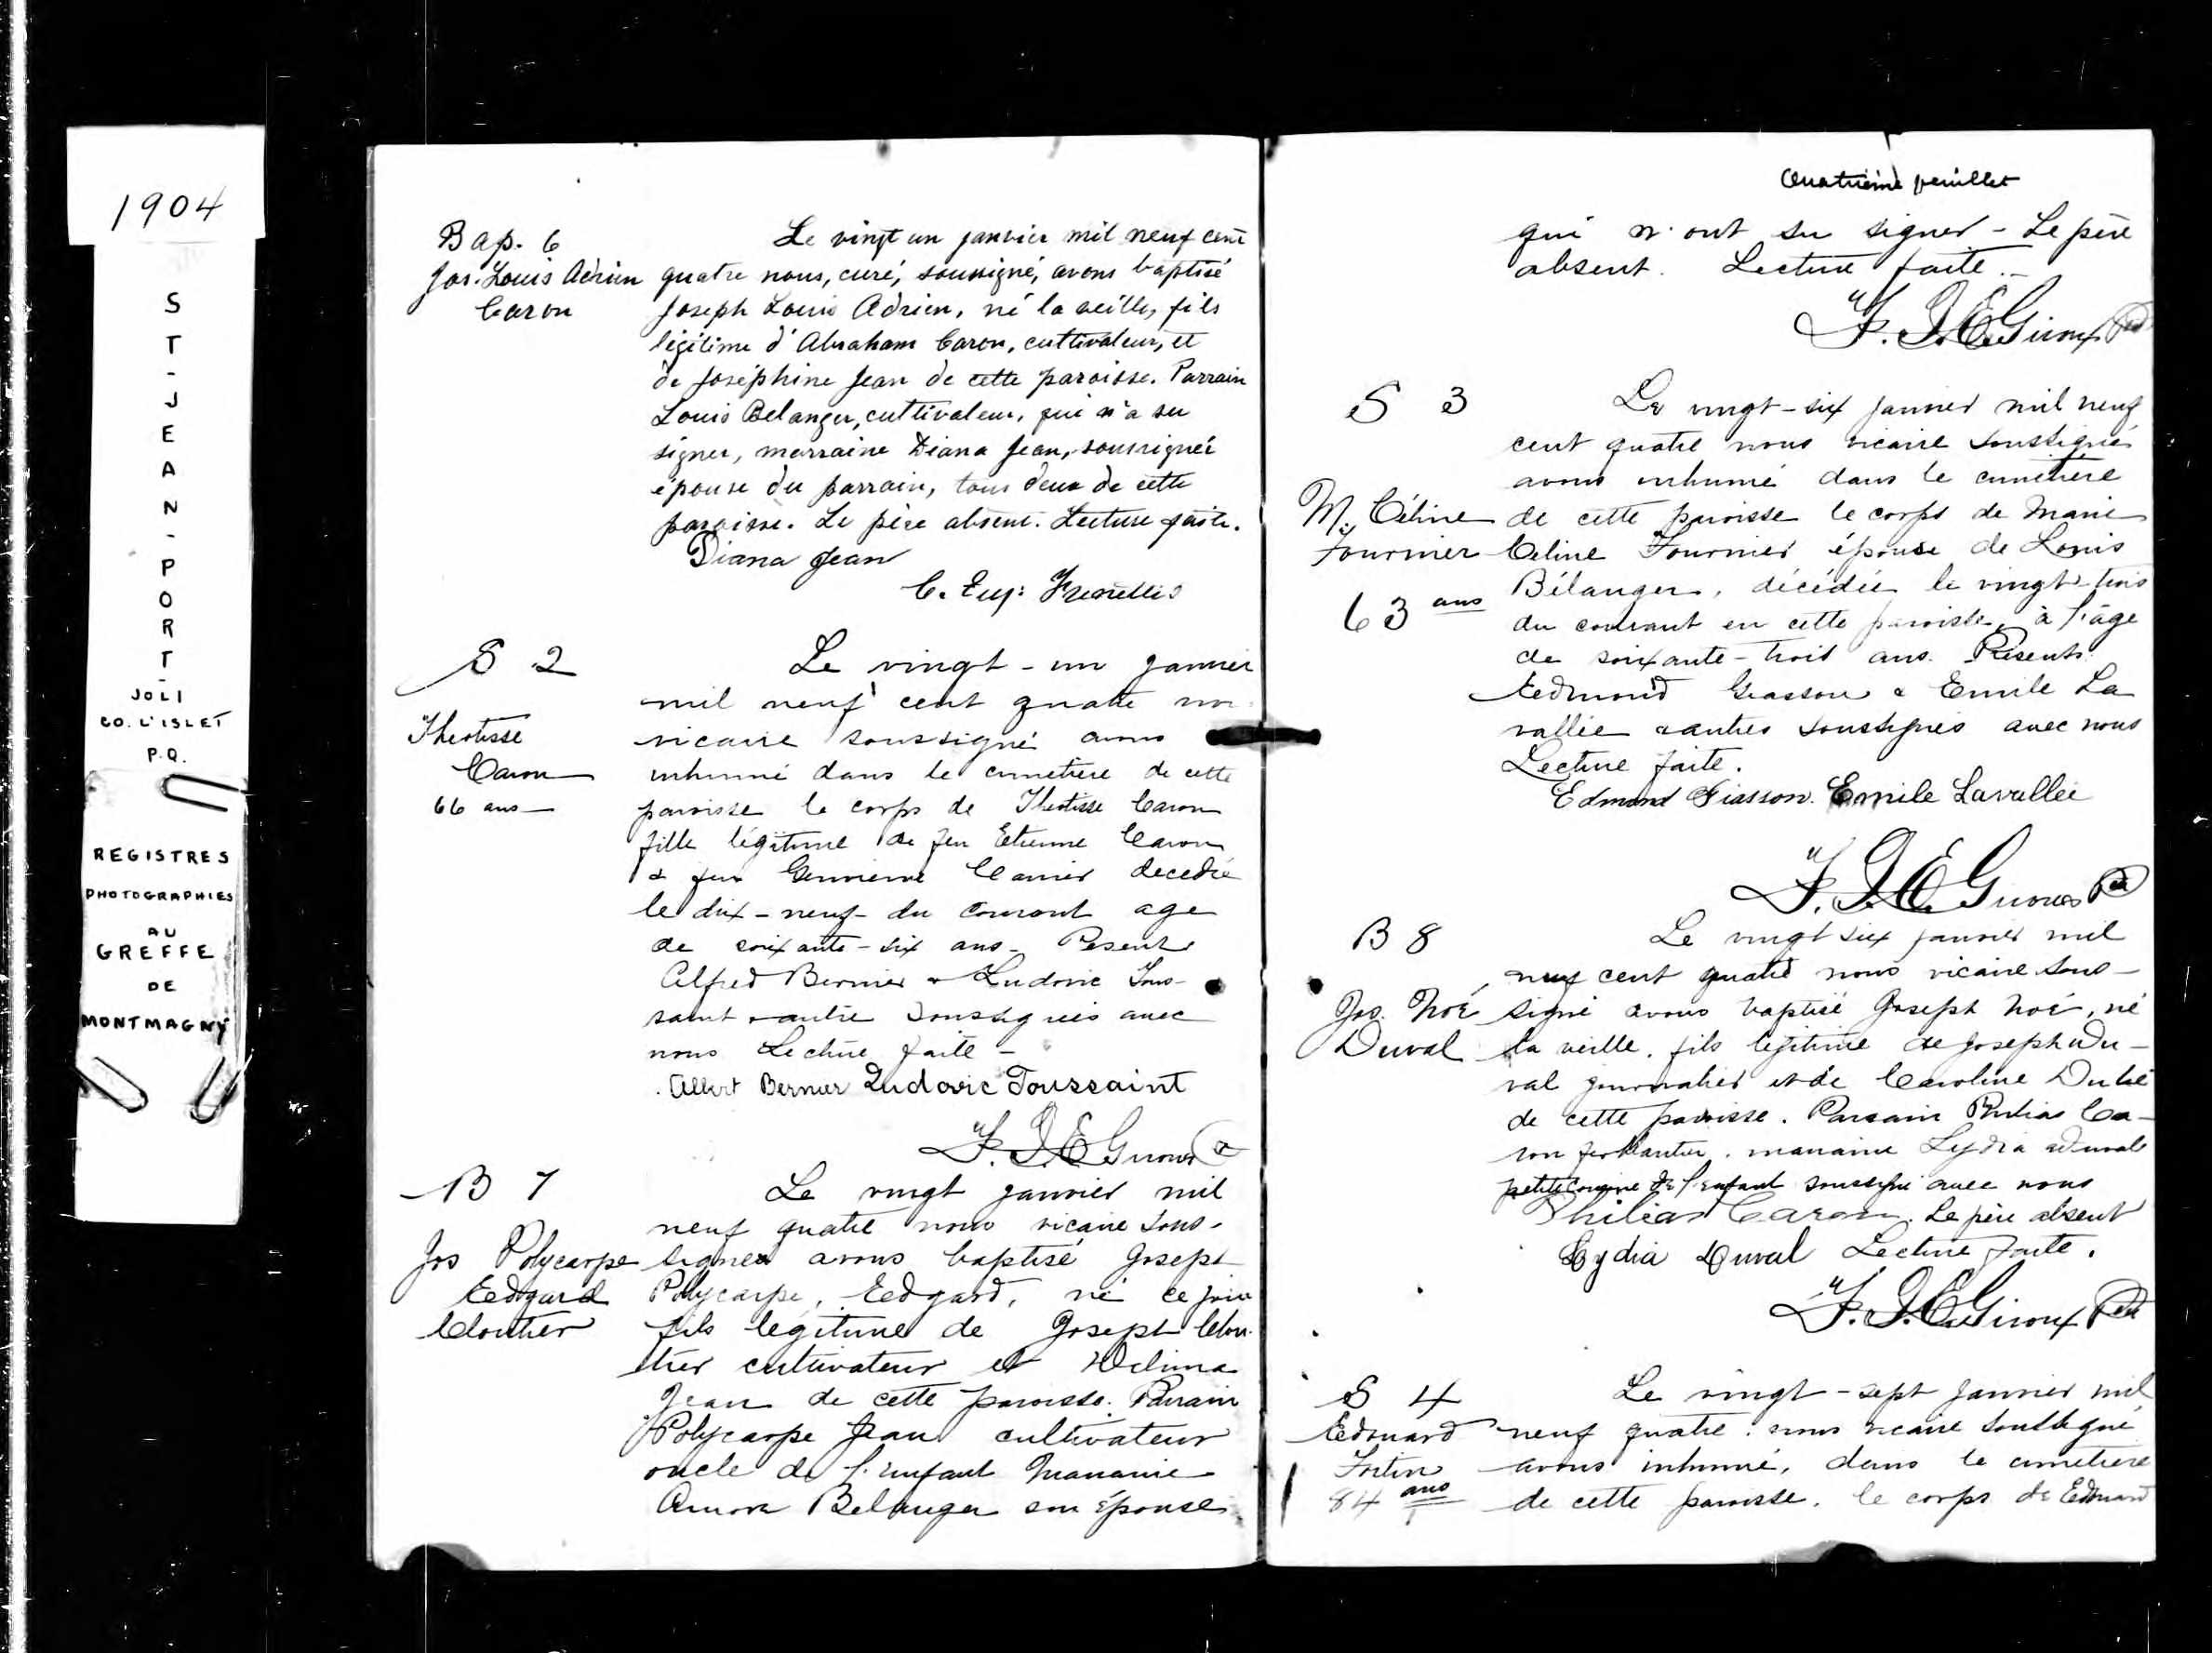 1904
ST-JEAN-PORT-
JOLI
CO. L'ISLET
P.Q.
REGISTRES
PHOTOGRAPHIES
AU
GREFFE
DE
MONTMAGNY
Bap. 6
Jos. Louis Adrien
Caron
Le vingt un janvier mil neuf cent
quatre nous, curé, soussigné, avons baptisé
Joseph Louis Adrien, né la veille, fils
légitime d'Abraham Caron, cultivateur, et
de Joséphine Jean de cette paroisse. Parrain
Louis Belanger, cultivateur, qui n'a su
signer, marraine Diana Jean, soussignée
épouse du parrain, tous deux de cette
paroisse. Le père absent. Lecture faite.
Diana Jean
C. Eug:
S 2
Theotisse
Caron
66 ans
Le vingt-un janvier
mil neuf cent quatre
vicaire soussigné avons
inhumé dans le cimetiere de cette
paroisse le corps de Theotisse Caron
fille légitime de feu Etienne Caron
& feu decedée
le dix-neuf du courant age
de soixante-six ans - Présents
Alfred Bernier & Ludovic Tous-
saint & autre soussignés avec
nous Lecture faite -
Albert Bernier Ludovic Toussaint
F. J. E. Giroux
B 7
Jos Polycarpe
Edgard
Cloutier
Le vingt janvier mil
neuf quatre nous vicaire sous-
signes avons baptisé Joseph
Polycarpe, Edgard, né ce jour
fils légitime de Joseph Clou-
tier cultivateur et Délima
Jean de cette paroisse. Parrain
Polycarpe Jean cultivateur
oncle de l'enfant Marraine
Belanger son épouse
Quatrième feuillet
qui n'ont su signer - Le père
absent. Lecture faite.-
F. J. E. Giroux Ptre
S 3
M. Céline
Fournier
63 ans
Le vingt-six janvier mil neuf
cent quatre nous vicaire soussigné
avons inhumé dans le cimetière
de cette paroisse le corps de Marie
Celine Fournier épouse de Louis
Bélanger, décédée le vingt-trois
du courant en cette paroisse, à l'âge
de soixante-trois ans. Présents
Edmond Giasson & Emile La
vallée & autres soussignés avec nous
Lecture faite.
Edmond Giasson. Emile Lavallée
F. J. E. Giroux Ptre
B 8
Jos. Noé
Duval
Le vingt six janvier mil
neuf cent quatre nous vicaire sous-
signé avons baptisé Joseph Noé, né
la veille, fils légitime de Joseph Du-
val journalier et de Caroline Dubé
de cette paroisse. Parrain Philias Ca-
ron ferblantier, marraine Lydia Duval
petite cousine de l'enfant soussigné avec nous
Philias Caron. Le père absent
Lydia Duval Lecture faite.
F. J. E. Giroux Ptre
S 4
Edouard
Fortin
84 ans
Le vingt-sept janvier mil
neuf quatre nous vicaire soussigné
avons inhumé, dans le cimetiere
de cette paroisse, le corps de Edouard